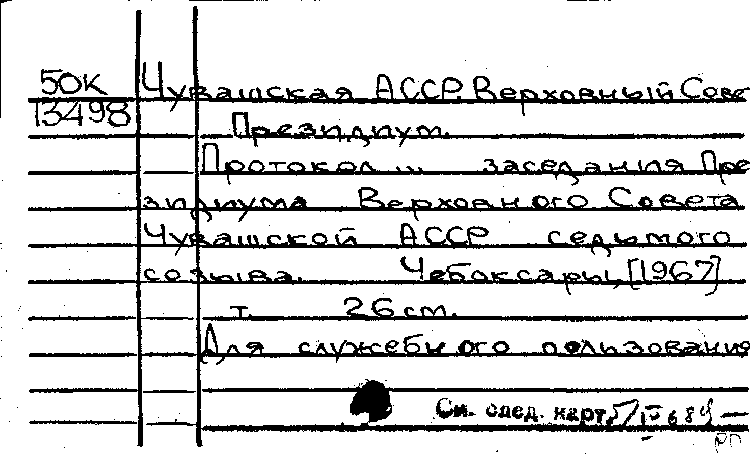 50К Чувашская АССР. Верховный Сове
13498
Президиум.
Протокол... заседания Пре
зидиума Верховного Совета
Чувашской АССР седьмого
созыва. Чебоксары, [1967]
т. 26 см.
Для служебного пользования
См. след. карт.